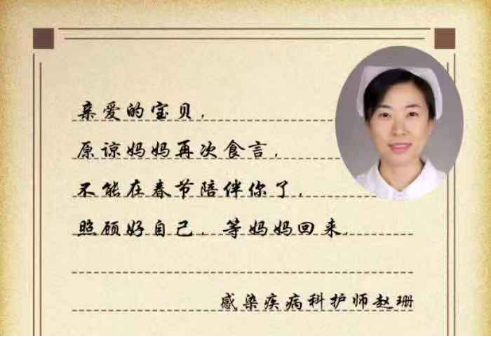 亲爱的宝贝，
原谅妈妈再次食言，
不能在春节陪伴你了，
照顾好自己，等妈妈回来。
感染疾病科护师赵珊